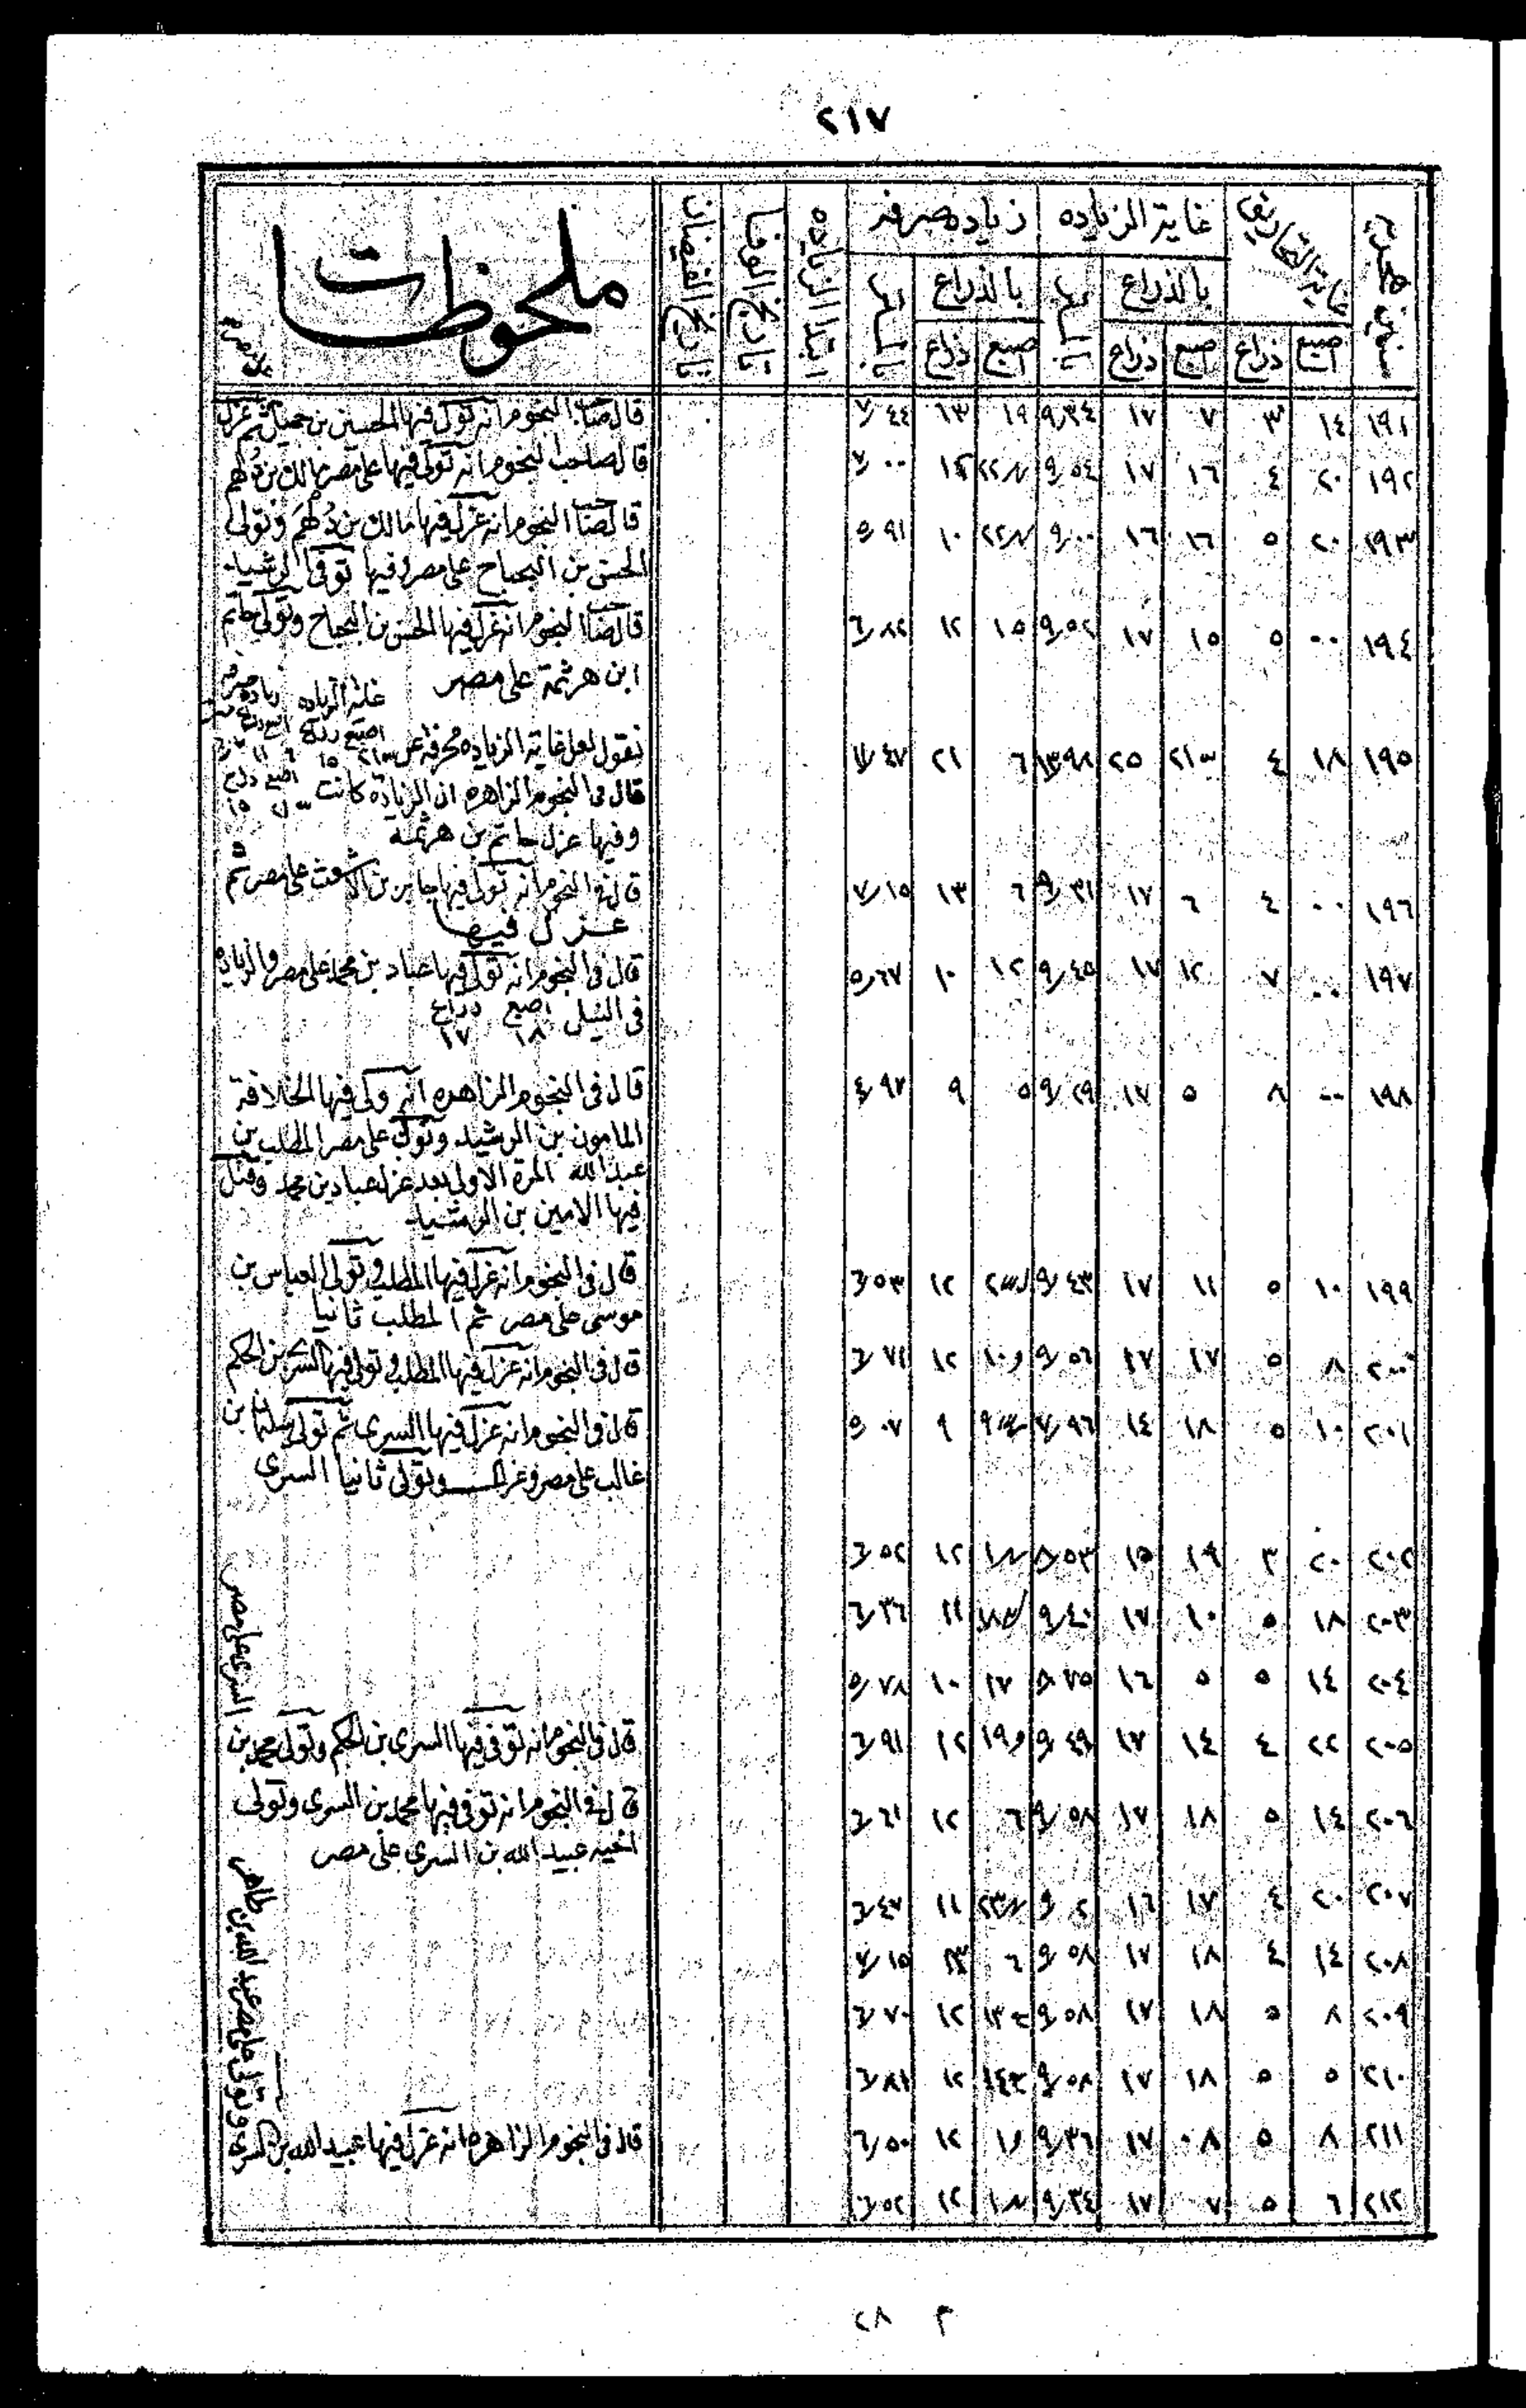 ٢١٧
سنين هجريه | غاية التحاريق | غاية الزياده | زياده صرفه | ابتدا الزياده | تاريخ الوفا | تاريخ الفيضان | ملحوظات
بالذراع | بالمتر | بالذراع | بالمتر
اصبع | ذراع | اصبع | ذراع | اصبع | ذراع
١٩١ | ١٤ | ٣ | ٧ | ١٧ | ٩٫٣٤ | ١٩ | ١٣ | ٧٫٤٤ | قال صاحب النجوم انه تولى فيها الحسين بن جميل ثم عزل
على مصر
١٩٢ | ٢٠ | ٤ | ١٦ | ١٧ | ٩٫٥٤ | ١٢ | ٧٫٠٠ | قال صاحب النجوم انه تولى فيها على مصر مالك بن دلهم
١٩٣ | ٢٠ | ٥ | ١٦ | ١٦ | ٩٫٠٠ | ١٠ | ٥٫٩١ | قال صاحب النجوم انه عزل فيها مالك بن دلهم وتولى
الحسن بن البحباح على مصر وفيها توفى الرشيد
١٩٤ | ٠٠ | ٥ | ١٥ | ١٧ | ٩٫٥٢ | ١٥ | ١٢ | ٦٫٨٢ | قال صاحب النجوم انه عزل فيها الحسن بن البحباح وتولى حاتم
ابن هرثمة على مصر
١٩٥ | ١٨ | ٤ | ٢٥ | ١٣٫٩٨ | ٦ | ٢١ | ١١٫٤٧ | نقول لعل غاية الزياده محرفة عن
قال فى النجوم الزاهره ان الزيادة كانت
وفيها عزل حاتم بن هرثمة
١٩٦ | ٠٠ | ٤ | ٦ | ١٧ | ٩٫٣١ | ٦ | ١٣ | ٧٫١٥ | قال فى النجوم انه تولى فيها جابر بن الاشعث على مصر ثم
عزل فيها
١٩٧ | ٠٠ | ٧ | ١٢ | ١٧ | ٩٫٤٥ | ١٢ | ١٠ | ٥٫٦٧ | قال فى النجوم انه تولى فيها عباد بن محمد على مصر والزياده
فى النيل اصبع ١٨ ذراع ١٧
١٩٨ | ٠٠ | ٨ | ٥ | ١٧ | ٩٫٢٩ | ٥ | ٩ | ٤٫٩٧ | قال فى النجوم الزاهره انه ولى فيها الخلافة
المامون بن الرشيد وتولى على مصر المطلب بن
عبد الله المرة الاولى بعد عزل عباد بن محمد وقتل
فيها الامين بن الرشيد
١٩٩ | ١٠ | ٥ | ١١ | ١٧ | ٩٫٤٣ | ١٢ | ٦٫٥٣ | قال فى النجوم انه عزل فيها المطلب وتولى العباس بن
موسى على مصر ثم المطلب ثانيا
٢٠٠ | ٨ | ٥ | ١٧ | ١٧ | ٩٫٥٦ | ١٢ | ٦٫٧١ | قال فى النجوم انه عزل فيها المطلب وتولى فيها السرى بن الحكم
٢٠١ | ١٠ | ٥ | ١٨ | ١٤ | ٧٫٩٦ | ٩ | ٥٫٠٧ | قال فى النجوم انه عزل فيها السرى ثم تولى سليمان بن
غالب على مصر وعزل وتولى ثانيا السرى
٢٠٢ | ٢٠ | ٣ | ١٩ | ١٥ | ٨٫٥٣ | ١٢ | ٦٫٥٢
٢٠٣ | ١٨ | ٥ | ١٠ | ١٧ | ٩٫٤٠ | ١١ | ٦٫٣٦
٢٠٤ | ١٤ | ٥ | ٥ | ١٦ | ٨٫٧٥ | ١٧ | ١٠ | ٥٫٧٨
٢٠٥ | ٢٢ | ٤ | ١٤ | ١٧ | ٩٫٤٩ | ١٢ | ٦٫٩١ | قال فى النجوم انه توفى فيها السرى بن الحكم وتولى محمد بن
السرى على مصر
٢٠٦ | ١٤ | ٥ | ١٨ | ١٧ | ٩٫٥٨ | ٦ | ١٢ | ٦٫٦١ | قال فى النجوم انه توفى فيها محمد بن السرى وتولى
اخيه عبيد الله بن السرى على مصر
٢٠٧ | ٢٠ | ٤ | ١٧ | ١٦ | ٩٫٠٢ | ١١ | ٦٫٤٧
٢٠٨ | ١٤ | ٤ | ١٨ | ١٧ | ٩٫٥٨ | ٦ | ١٣ | ٧٫١٥
٢٠٩ | ٨ | ٥ | ١٨ | ١٧ | ٩٫٥٨ | ١٢ | ٦٫٧٠
٢١٠ | ٥ | ٥ | ١٨ | ١٧ | ٩٫٥٨ | ١٢ | ٦٫٨١
٢١١ | ٨ | ٥ | ٠٨ | ١٧ | ٩٫٣٦ | ١٢ | ٦٫٥٠ | قال فى النجوم الزاهره انه عزل فيها عبيد الله بن السرى
وتولى على مصر عبد الله بن طاهر
٢١٢ | ٦ | ٥ | ٧ | ١٧ | ٩٫٣٤ | ١٢ | ٦٫٥٢
م ٢٨